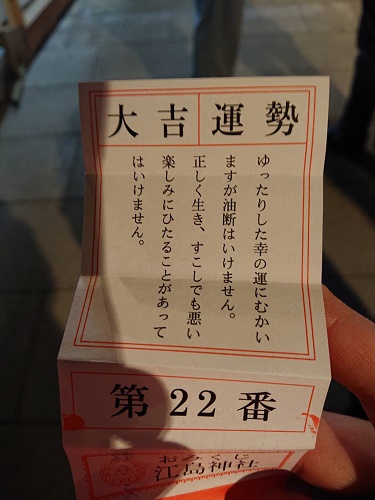 大吉運勢
ゆったりした幸の運にむかい
ますが油断はいけません。
正しく生き、すこしでも悪い
楽しみにひたることがあって
はいけません。
第22番
おみくじ
江島神社